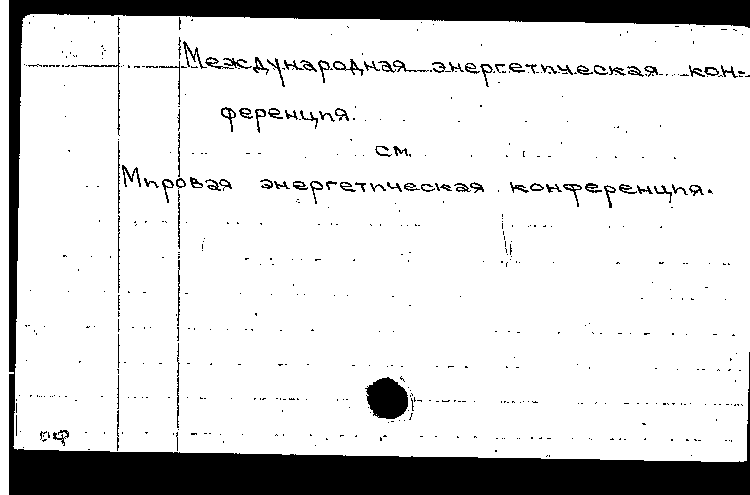 Международная энергетическая кон-
ференция.
см.
Мировая энергетическая конференция.